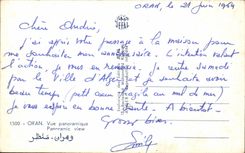 ORAN, le 21 Juin 1964
Chère Andrée,
J'ai appris votre passage à la maison pour
me souhaiter mon anniversaire. L'intention valant
l'action, je vous en remercie. Je rentre samedi
par le Ville d'Alger et je souhaite avoir
beau temps (petit cœur fragile au mal de mer)
Je vous espère en bonne santé. A bientôt
Grosses bises.
1500 - ORAN. Vue panoramique
Panoramic view
وهران - منظر